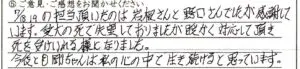 ⑤ご意見・ご感想をお聞かせください
7/18,19の担当頂いたのは岩板さんと野口さんでしたが感謝して
います。愛犬の死で失望しておりましたが暖かく対応して頂き
死を受けいれる様になりました。
今後と日聞ちゃんは私の心の中で生き続けると思っています。